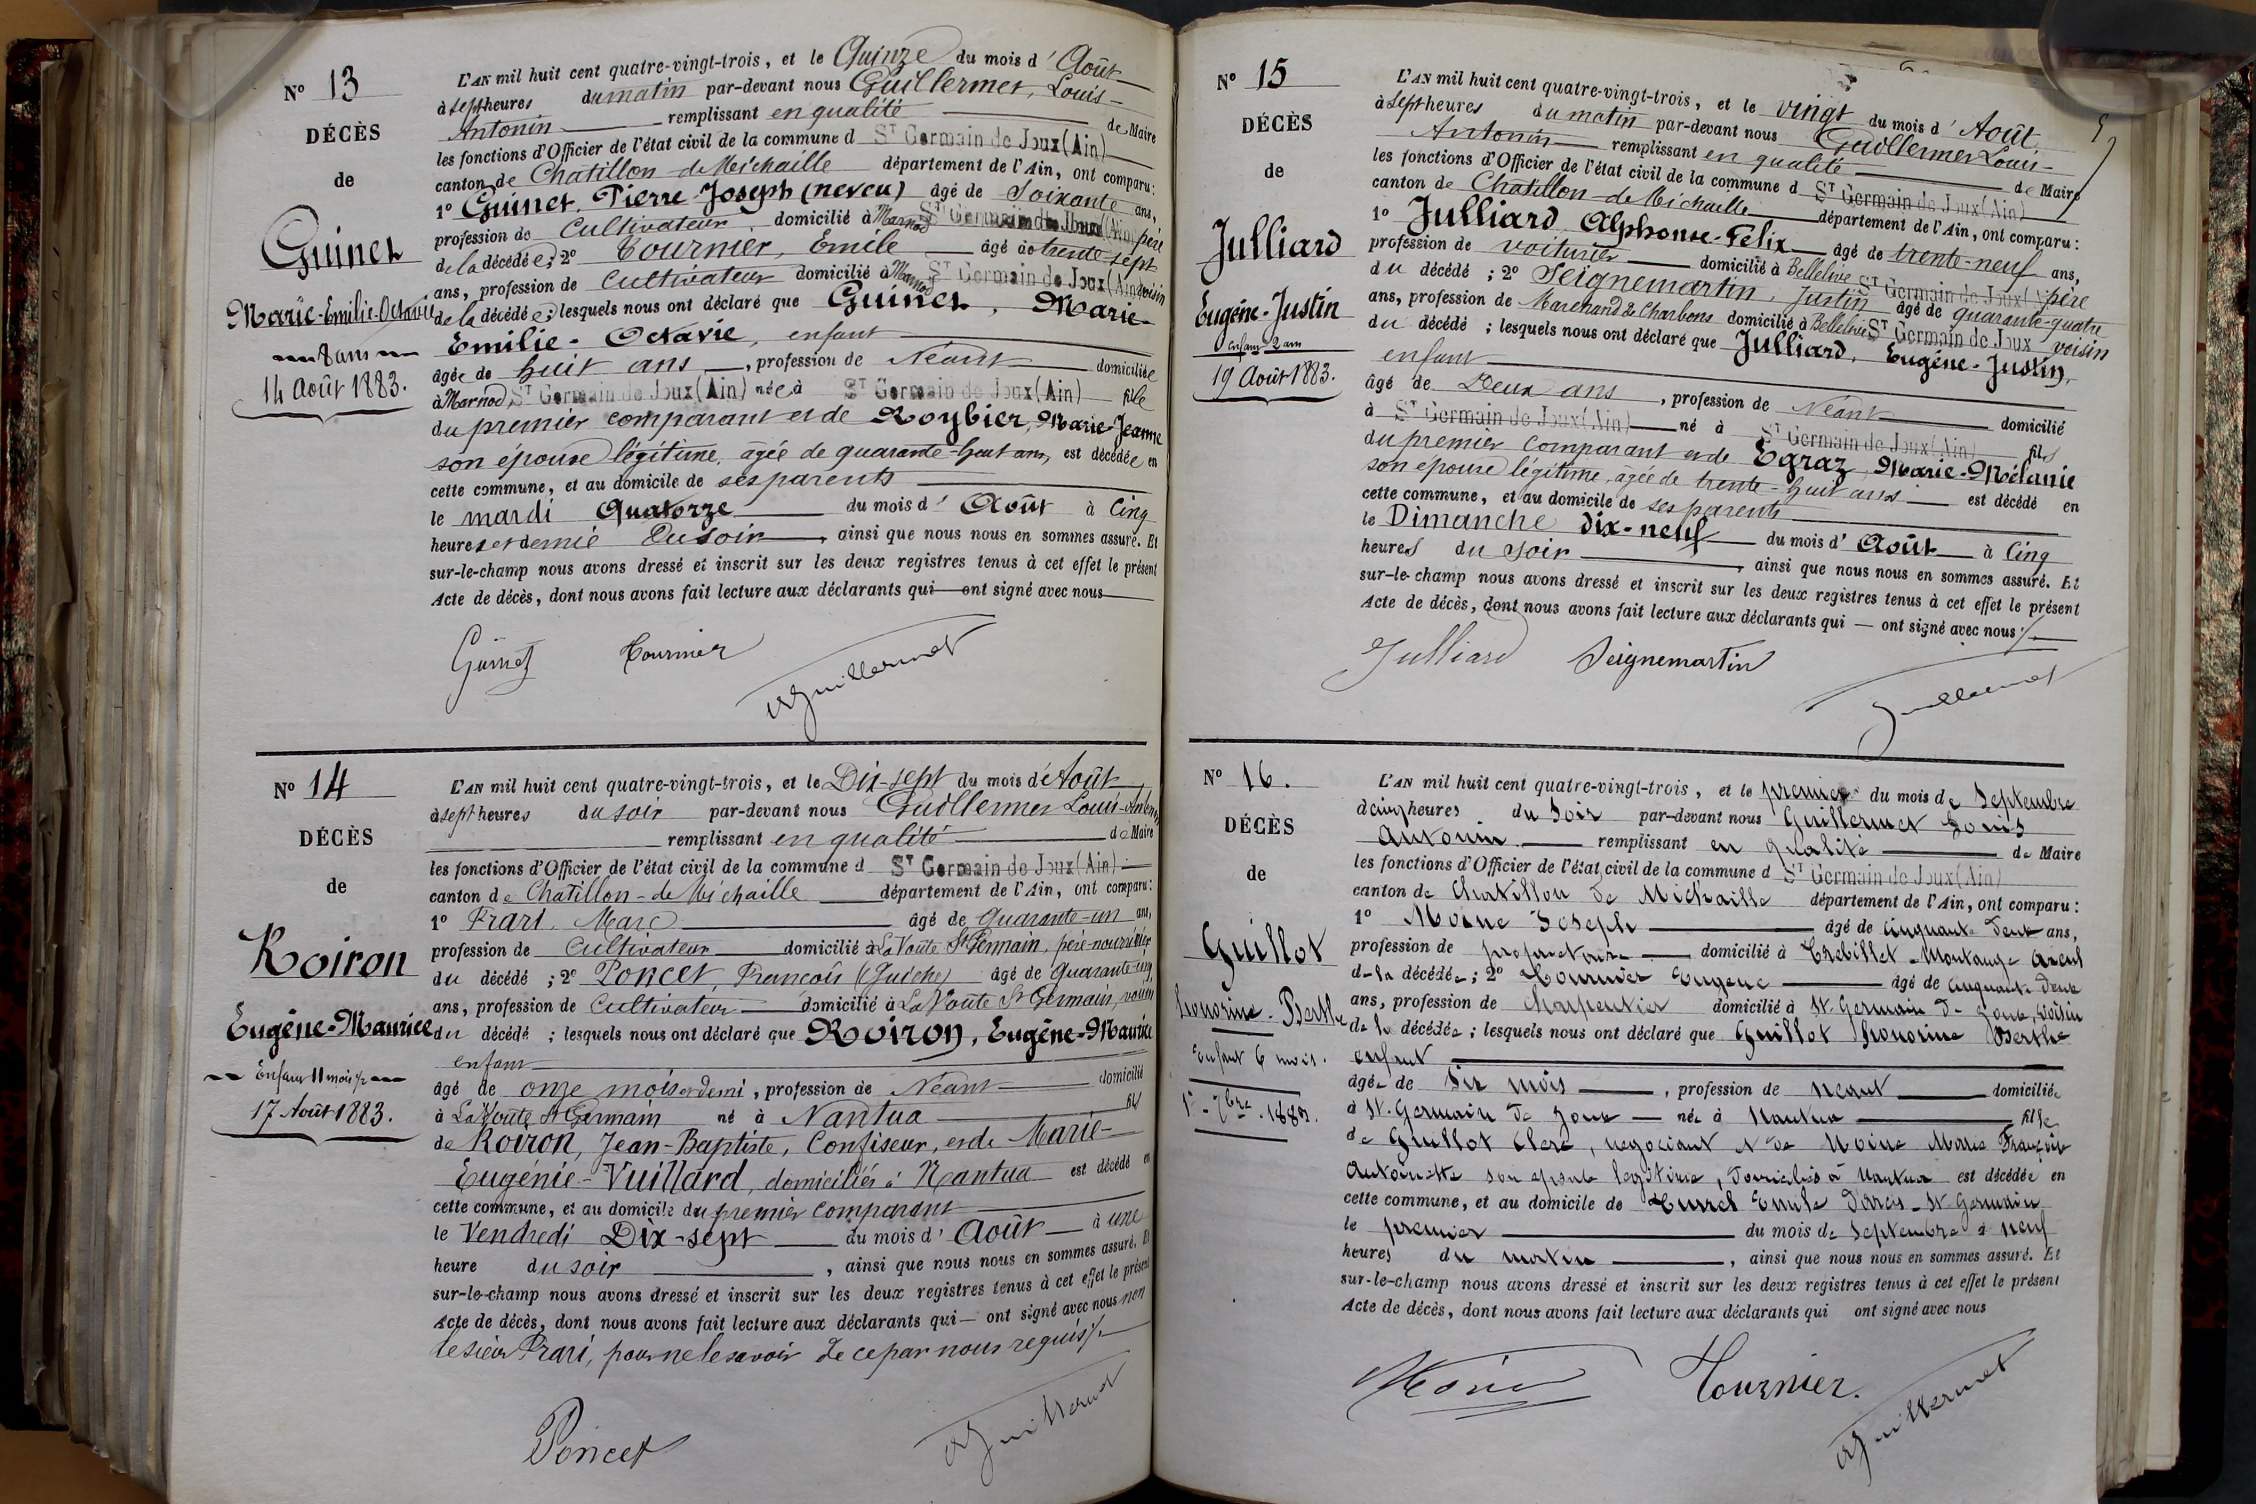 N° 13
DÉCÈS
de
Guinet
Marie-Emilie-Octavie
8 ans
14 Août 1883.
L'AN mil huit cent quatre-vingt-trois, et le Quinze du mois d'Août
à sept heures du matin par-devant nous Guillermet, Louis-
Antonin remplissant en qualité de Maire
les fonctions d'Officier de l'état civil de la commune d ST Germain de Joux (Ain)
canton de Chatillon-de-Michaille département de l'Ain, ont comparu:
1° Guinet, Pierre-Joseph (neveu) âgé de Soixante ans,
profession de Cultivateur domicilié à Marnod ST Germain de Joux (Ain) père
de la décédée; 2° Tournier, Emile âgé de trente-sept
ans, profession de Cultivateur domicilié à Marnod ST Germain de Joux (Ain) voisin
de la décédée; lesquels nous ont déclaré que Guinet, Marie-
Emilie-Octavie, enfant
âgée de huit ans, profession de Néant domiciliée
à Marnod, ST Germain de Joux (Ain) née à ST Germain de Joux (Ain) fille
du premier comparant et de Roybier, Marie-Jeanne
son épouse légitime, âgée de quarante-huit ans, est décédée en
cette commune, et au domicile de ses parents
le mardi Quatorze du mois d'Août à Cinq
heures et demie du soir, ainsi que nous nous en sommes assuré. Et
sur-le-champ nous avons dressé et inscrit sur les deux registres tenus à cet effet le présent
Acte de décès, dont nous avons fait lecture aux déclarants qui ont signé avec nous
Guinet Tournier
Guillermet
N° 14
DÉCÈS
de
Roiron
Eugéne-Maurice
Enfant 11 mois 1/2
17 Août 1883.
L'AN mil huit cent quatre-vingt-trois, et le Dix-sept du mois d'Août
à sept heures du soir par-devant nous Guillermet Louis-Antonin
remplissant en qualité de Maire
les fonctions d'Officier de l'état civil de la commune d ST Germain de Joux (Ain)
canton de Chatillon-de-Michaille département de l'Ain, ont comparu:
1° Frari, Marc âgé de Quarante-un ans,
profession de Cultivateur domicilié à La Voûte St Germain, père-nourricier
du décédé; 2° Poncet, François (Guiche) âgé de Quarante-cinq
ans, profession de Cultivateur domicilié à La Voûte St Germain, voisin
du décédé; lesquels nous ont déclaré que Roiron, Eugéne-Maurice
enfant
âgé de onze mois et demi, profession de Néant domicilié
à La Voûte St Germain né à Nantua fils
de Roiron, Jean-Baptiste, Confiseur, et de Marie-
Eugénie-Vuillard, domiciliés à Nantua est décédé en
cette commune, et au domicile du premier comparant
le Vendredi Dix-sept du mois d'Août à une
heure du soir, ainsi que nous nous en sommes assuré. Et
sur-le-champ nous avons dressé et inscrit sur les deux registres tenus à cet effet le présent
Acte de décès, dont nous avons fait lecture aux déclarants qui ont signé avec nous non
le sieur Frari, pour ne le savoir de ce par nous requis
Poncet
Guillermet
N° 15
DÉCÈS
de
Julliard
Eugéne-Justin
enfant 2 ans
19 Août 1883.
L'AN mil huit cent quatre-vingt-trois, et le vingt du mois d'Août
à Sept heures du matin par-devant nous Guillermet Louis-
Antonin remplissant en qualité de Maire
les fonctions d'Officier de l'état civil de la commune d ST Germain de Joux (Ain)
canton de Chatillon-de-Michaille département de l'Ain, ont comparu:
1° Julliard Alphonse-Félix âgé de trente-neuf ans,
profession de voiturier domicilié à Bellelive ST Germain de Joux père
du décédé; 2° Seignemartin, Justin âgé de quarante-quatre
ans, profession de Marchand de Charbons domicilié à Bellelive ST Germain de Joux voisin
du décédé; lesquels nous ont déclaré que Julliard, Eugéne-Justin,
enfant
âgé de Deux ans, profession de Néant domicilié
à ST Germain de Joux (Ain) né à ST Germain de Joux (Ain) fils
du premier comparant et de Egraz, Marie-Mélanie
son épouse légitime, âgée de trente-huit ans est décédé en
cette commune, et au domicile de ses parents
le Dimanche dix-neuf du mois d'Août à Cinq
heures du soir, ainsi que nous nous en sommes assuré. Et
sur-le-champ nous avons dressé et inscrit sur les deux registres tenus à cet effet le présent
Acte de décès, dont nous avons fait lecture aux déclarants qui ont signé avec nous
Julliard Seignemartin
Guillermet
N° 16.
DÉCÈS
de
Guillot
honorine-Berthe
Enfant 6 mois.
1er 7bre 1883.
L'AN mil huit cent quatre-vingt-trois, et le premier du mois de Septembre
à cinq heures du Soir par-devant nous Guillermet Louis
Antonin remplissant en qualité de Maire
les fonctions d'Officier de l'état civil de la commune d ST Germain de Joux (Ain)
canton de Chatillon de Michaille département de l'Ain, ont comparu:
1° Moine Joseph âgé de cinquante deux ans,
profession de propriétaire domicilié à Trebillet-Montange aïeul
de la décédée; 2° Tournier Eugene âgé de cinquante deux
ans, profession de Charpentier domicilié à St-Germain de Joux, voisin
de la décédée; lesquels nous ont déclaré que Guillot honorine Berthe
enfant
âgée de six mois, profession de neant domiciliée
à St-Germain de Joux née à Nantua fille
de Guillot Clere, negociant & de Moine Marie Françoise
Antoinette son epouse legitime, domiciliés à Nantua est décédée en
cette commune, et au domicile de Emile St Germain
le premier du mois de Septembre à neuf
heures du matin, ainsi que nous nous en sommes assuré. Et
sur-le-champ nous avons dressé et inscrit sur les deux registres tenus à cet effet le présent
Acte de décès, dont nous avons fait lecture aux déclarants qui ont signé avec nous
Moine Tournier.
Guillermet